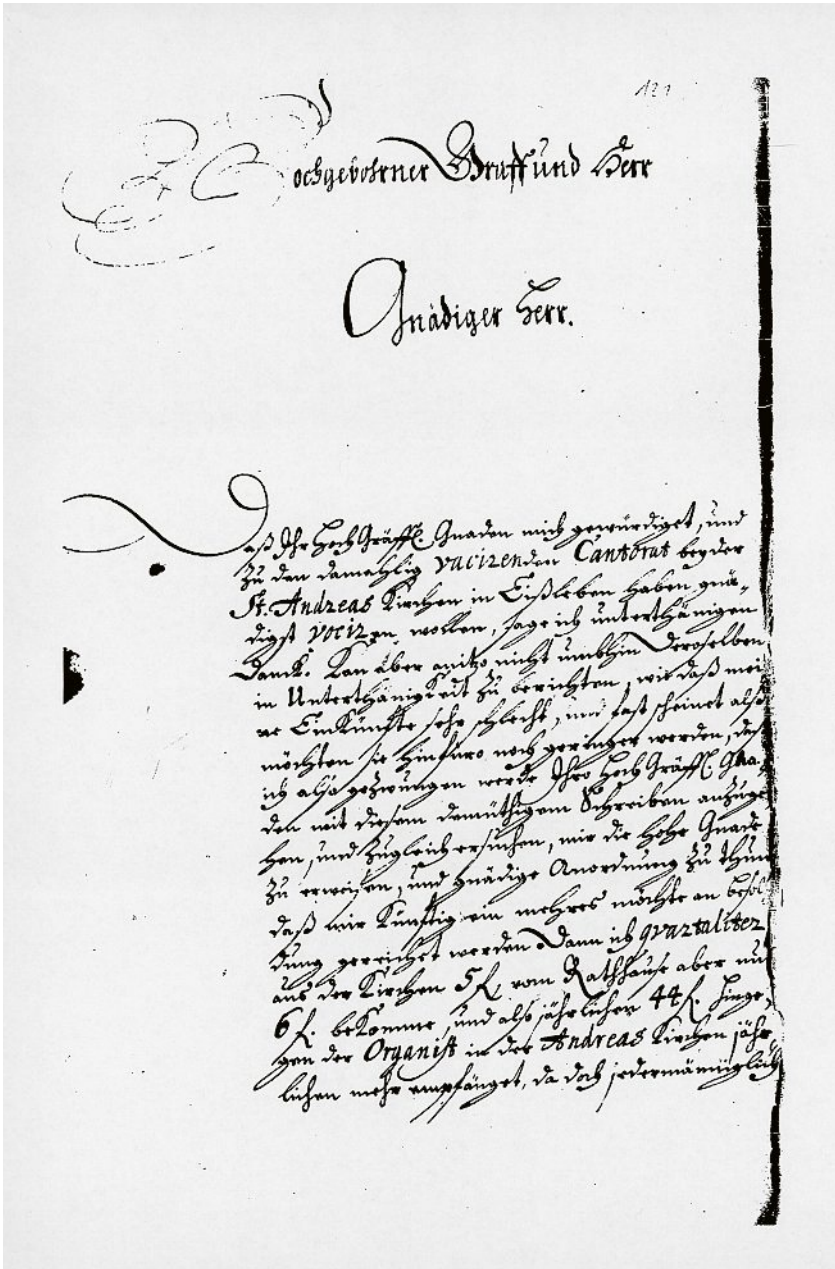 121
Hochgebohrner Graff und Herr
Gnädiger Herr.
Daß Ihr HochGräffl. Gnaden mich gewürdiget, und
zu den damahlig vacirenden Cantorat bey der
St. Andreas Kirchen in Eißleben haben gnä-
digst vociren wollen, sage ich unterthänigen
Danck. Kan aber anitzo nicht umbhin Deroselben
in Unterthänigkeit zu berichten, wie daß mei
ne Einkünffte sehr schlecht, und fast scheinet alß
möchten sie hinfüro noch geringer werden, daß
ich also gezwungen werde Ihro HochGräffl. Gna-
den mit diesem demüthigem Schreiben anzuge
hen, und zugleich ersuchen, mir die hohe Gnade
zu erweisen, und gnädige Anordnung zu thun
daß mir künfftig ein mehres möchte an besol
dung gereichet werden Dann ich qvartaliter
aus der Kirchen 5 f, vom Rathhause aber nur
6 f. bekomme, und also jährlichen 44 f. hinge-
gen der Organist in der Andreas Kirchen jähr-
lichen mehr empfänget, da doch jedermänniglich